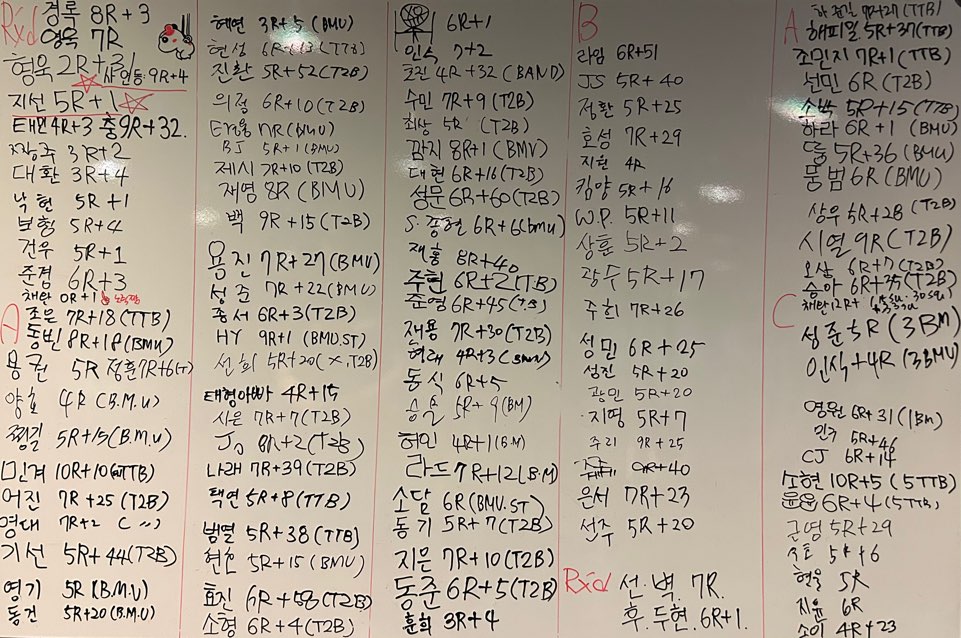 Rx'd
경록 8R+3
영욱 7R
형욱 2R+31
샤인동: 9R+4
지선 5R+1
태민 4R+3 출9R+32.
짱주 3R+2
대환 3R+4
낙현 5R+1
보험 5R+4
건우 5R+1
준경 6R+3
채란 0R+1
A
조은 7R+18(TTB)
동빈 8R+18(BMU)
용권 5R 정훈7R+6(T)
양호 4R(B.M.U)
찜길 5R+15(B.M.U)
민계 10R+10(TTB)
어진 7R+25(T2B)
영대 7R+2 ( 〃 )
기선 5R+44(T2B)
영기 5R(B.M.U)
동건 5R+20(B.M.U)
혜연 3R+5(BMU)
현성 6R+13(TTB)
진환 5R+52(T2B)
의정 6R+10(T2B)
7R(BMU)
BJ 5R+1(BMU)
제시 7R+10(T2B)
재영 8R(BMU)
백 9R+15(T2B)
용진 7R+27(BMU)
성준 7R+22(BMU)
종서 6R+3(T2B)
HY 9R+1(BMU.ST)
선희 5R+20(X.T2B)
태형아빠 4R+15
시은 7R+7(T2B)
JJ 8R+2(T2B)
나래 7R+39(T2B)
택연 5R+8(TTB)
범열 5R+38(TTB)
현호 5R+15(BMU)
효진 6R+58(T2B)
소형 6R+4(T2B)
6R+1
인식 7+2
호진 4R+32(BAND)
수민 7R+9(T2B)
최상 5R(T2B)
감지 8R+1(BMU)
대현 6R+16(T2B)
성문 6R+60(T2B)
S.종현 6R+6(BMU)
재홍 8R+40
주현 6R+2(TTB)
준영 6R+45(T.B)
재용 7R+30(T2B)
혁래 4R+3(BMU)
동식 6R+5
승윤 5R+9(BM)
혜인 4R+1(B.M)
라드 7R+12(B.M)
소담 6R(BMU.ST)
동기 5R+7(T2B)
지은 7R+10(T2B)
동준 6R+5(T2B)
훈희 3R+4
B
라임 6R+51
JS 5R+40
정환 5R+25
효성 7R+29
지현 4R
킴양 5R+16
W.P. 5R+11
상훈 5R+2
광수 5R+17
주희 7R+26
성민 6R+25
성진 5R+20
광민 5R+20
지명 5R+7
주리 9R+25
9R+40
은서 7R+23
선주 5R+20
Rx'd
선.벽. 7R.
후.두현. 6R+1.
A
7R+27(TTB)
해피밀 5R+37(TTB)
조민지 7R+1(TTB)
선민 6R(T2B)
소박 5R+15(TTB)
하라 6R+1(BMU)
둠 5R+36(BMU)
뭉범 6R(BMU)
상우 5R+28(T2B)
시열 9R(T2B)
오상 6R+7(T2B)
승아 6R+35(T2B)
C
채란 12R+1
성준 5R(3BM)
인식 +4R(3BMU)
영원 6R+31(1BM)
민주 5R+46
CJ 6R+14
소현 10R+5(5TTB)
윤윤 6R+4(5TTB)
근영 5R+29
쇼토 5+6
현율 5R
지윤 6R
소이 4R+23